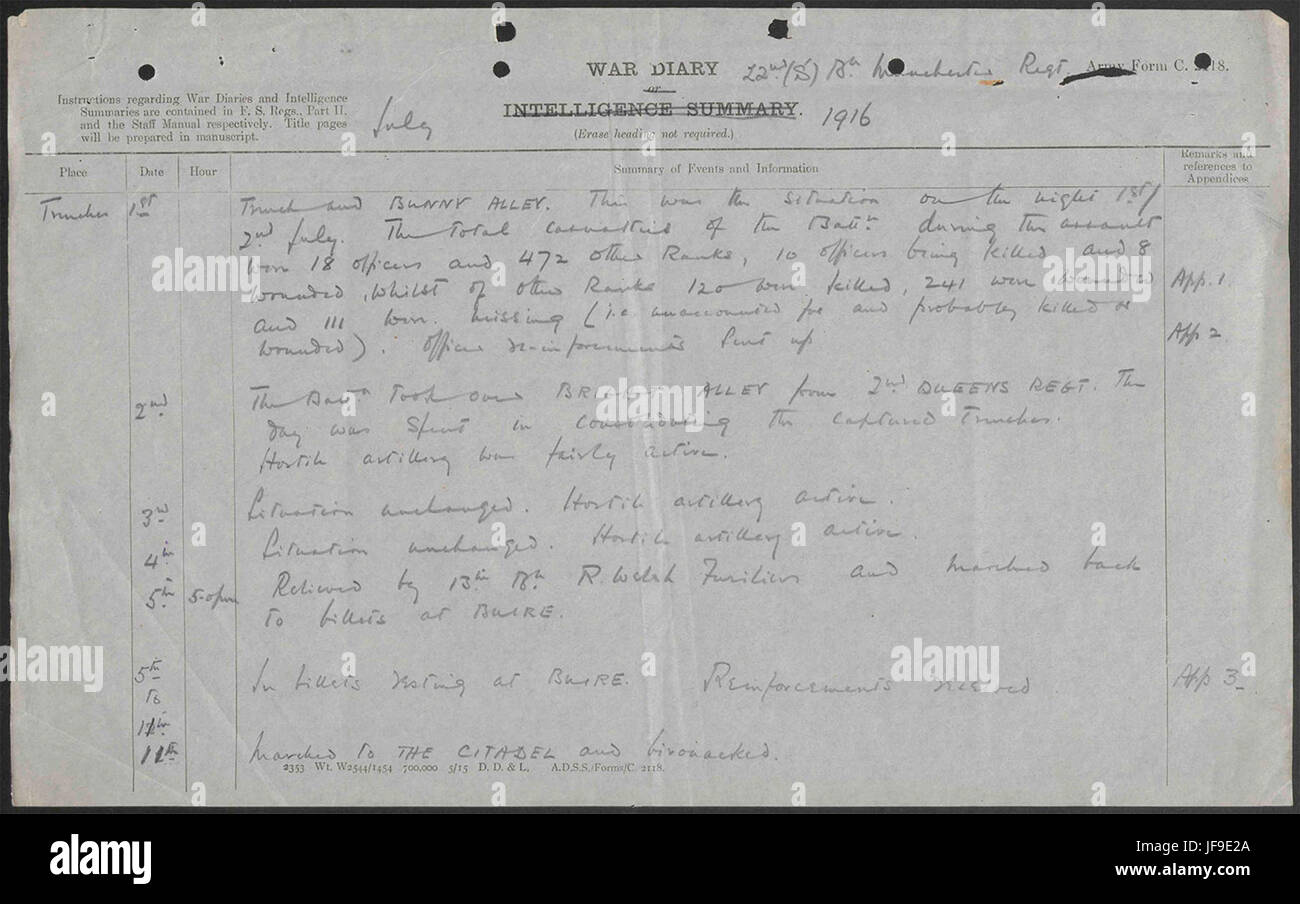 WAR DIARY 22nd (S) Bn Manchester Regt. Army Form C. 2118.
or
INTELLIGENCE SUMMARY.
(Erase heading not required.)
July 1916
Instructions regarding War Diaries and Intelligence
Summaries are contained in F. S. Regs., Part II.
and the Staff Manual respectively. Title pages
will be prepared in manuscript.
Place Date Hour Summary of Events and Information Remarks and
references to
Appendices
Trenches 1st Trench and BUNNY ALLEY. This was the situation on the night 1st/
2nd July. The total casualties of the Battn during the assault
were 18 officers and 472 other Ranks, 10 officers being killed and 8
wounded, whilst of other Ranks 120 were killed, 241 were wounded App. 1.
and 111 were missing (i.e. unaccounted for and probably killed or
wounded). Officer re-inforcements sent up App 2.
2nd The Battn took over ALLEY from 2nd QUEENS REGT. The
day was spent in consolidating the captured trenches.
Hostile artillery was fairly active.
3rd Situation unchanged. Hostile artillery active.
4th Situation unchanged. Hostile artillery active.
5th 5.0pm Relieved by 13th Bn R. Welsh Fusiliers and marched back
to billets at BUIRE.
5th In billets resting at BUIRE. Reinforcements received App 3
to
11th
11th Marched to THE CITADEL and bivouacked.
2353 Wt. W2544/1454 700,000 5/15 D. D. & L. A.D.S.S./Forms/C. 2118.
alamy
alamy
Image ID: JF9E2A
www.alamy.com